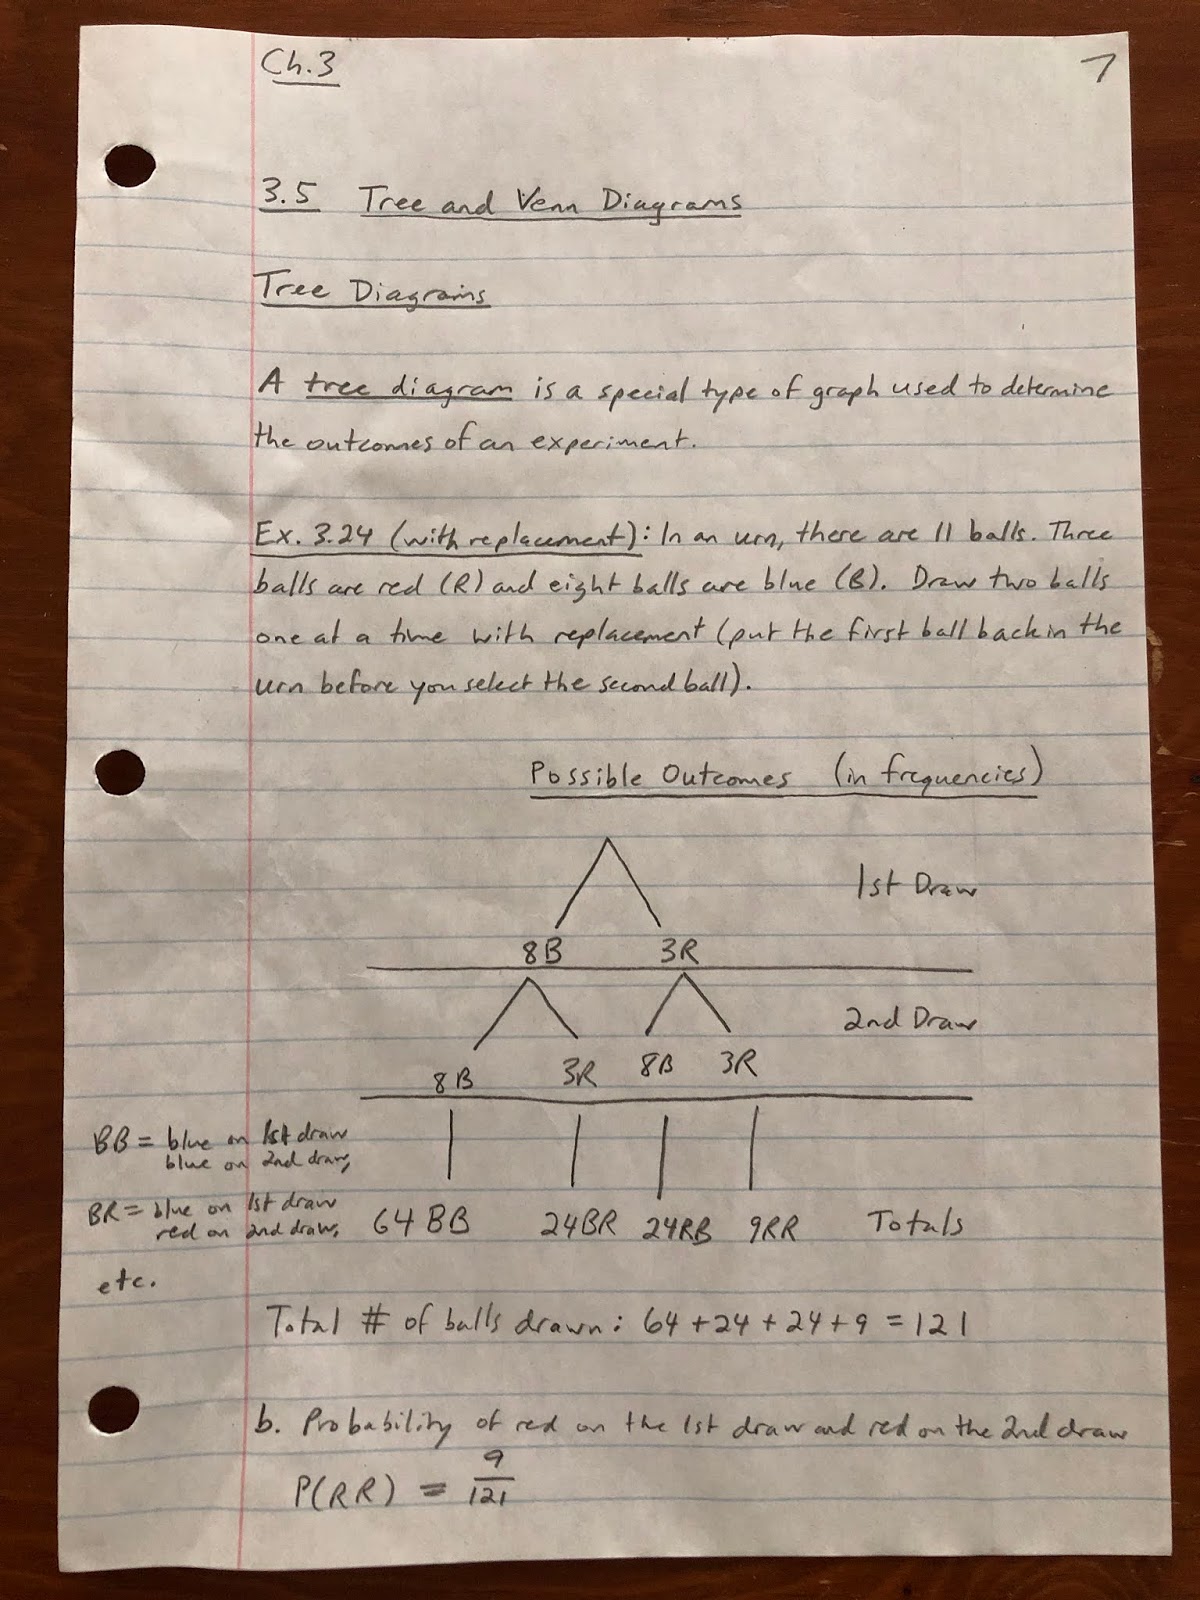 Ch.3
7
3.5 Tree and Venn Diagrams
Tree Diagrams
A tree diagram is a special type of graph used to determine
the outcomes of an experiment.
Ex. 3.24 (with replacement): In an urn, there are 11 balls. Three
balls are red (R) and eight balls are blue (B). Draw two balls
one at a time with replacement (put the first ball back in the
urn before you select the second ball).
Possible Outcomes (in frequencies)
1st Draw
8B 3R
2nd Draw
8B 3R 8B 3R
BB = blue on 1st draw
blue on 2nd draw,
BR = blue on 1st draw
red on 2nd draw,
etc.
64 BB 24BR 24RB 9RR Totals
Total # of balls drawn: 64 + 24 + 24 + 9 = 121
b. Probability of red on the 1st draw and red on the 2nd draw
P(RR) = 9/121